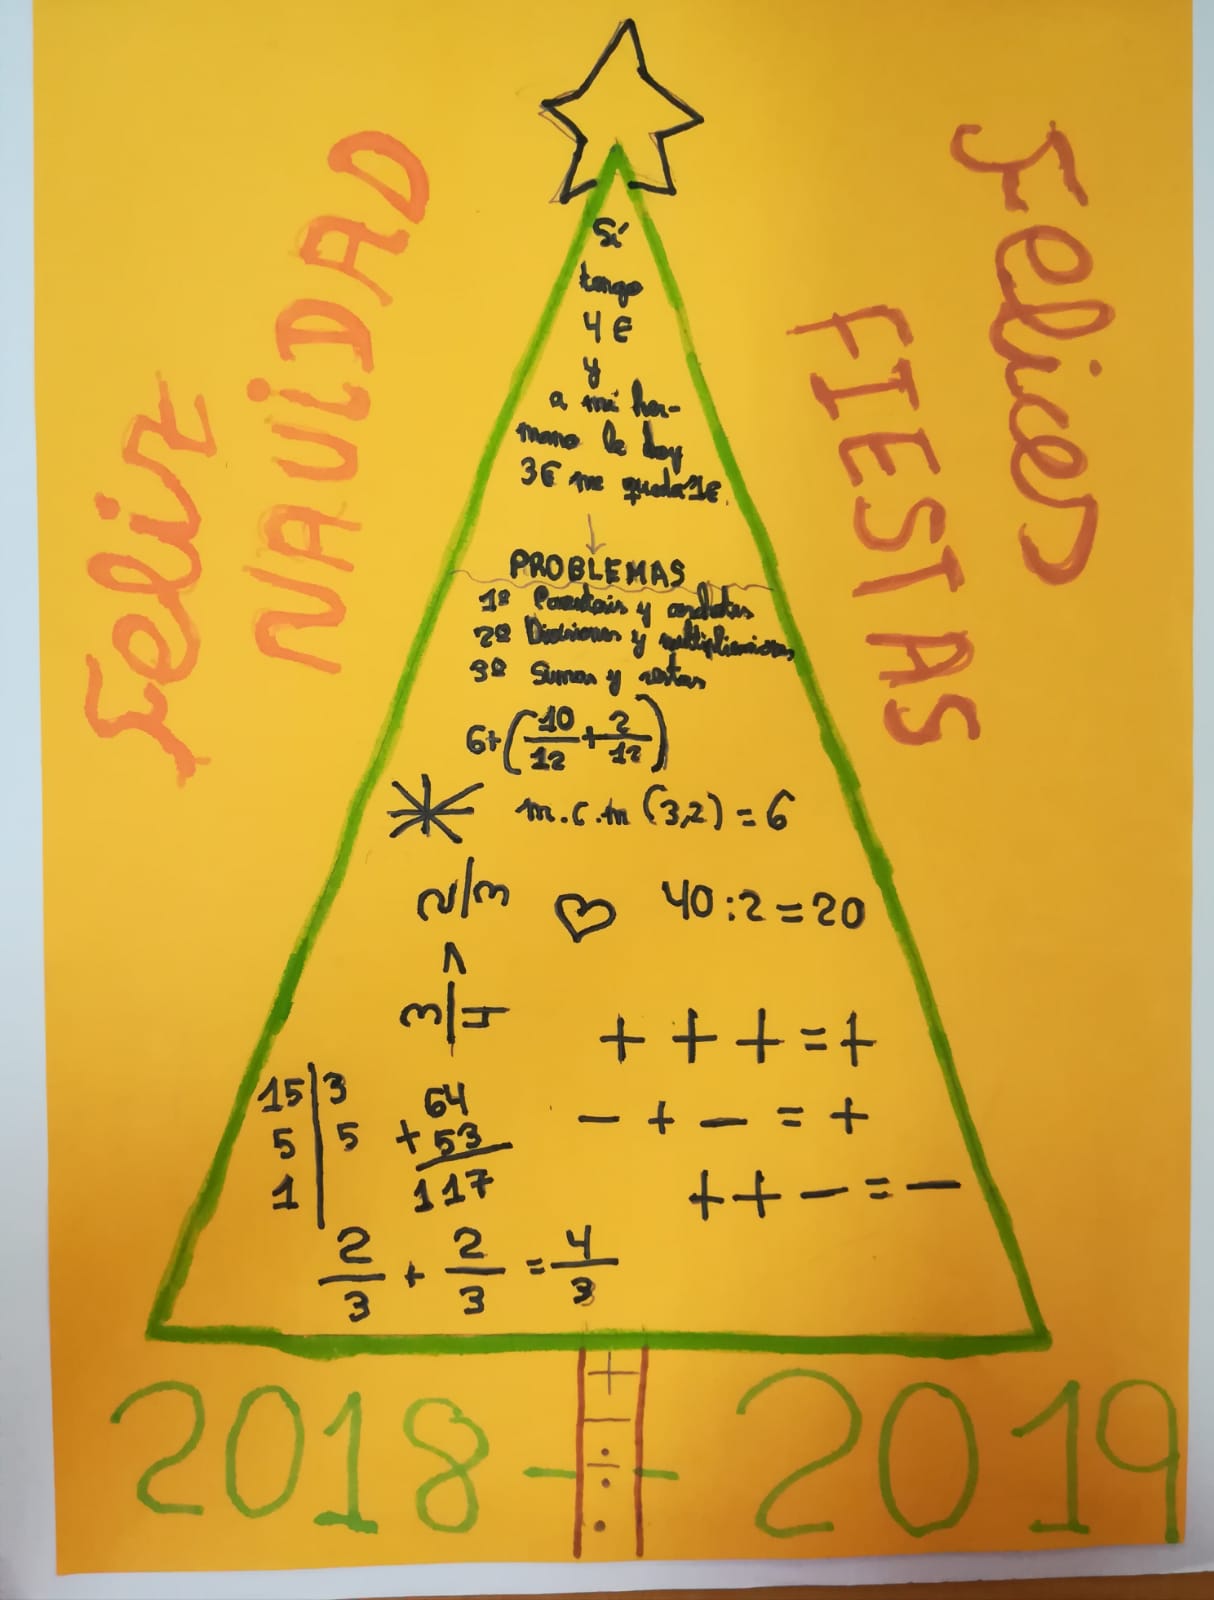 Feliz
NAVIDAD
Felices
FIESTAS
Si
tengo
4 €
y
a mi her-
mano le doy
3€ me queda 1€.
PROBLEMAS
1º Parentesis y corchetes
2º Divisiones y multiplicaciones
3º Sumas y restas
6+(10/12+2/12)
m.c.m (3,2) = 6
2/3
40:2=20
<
3/4
+ + + = +
15|3
5|5
1|
64
+ 53
117
- + - = +
+ + - = -
2/3 + 2/3 = 4/3
+
-
÷
·
2018 - 2019